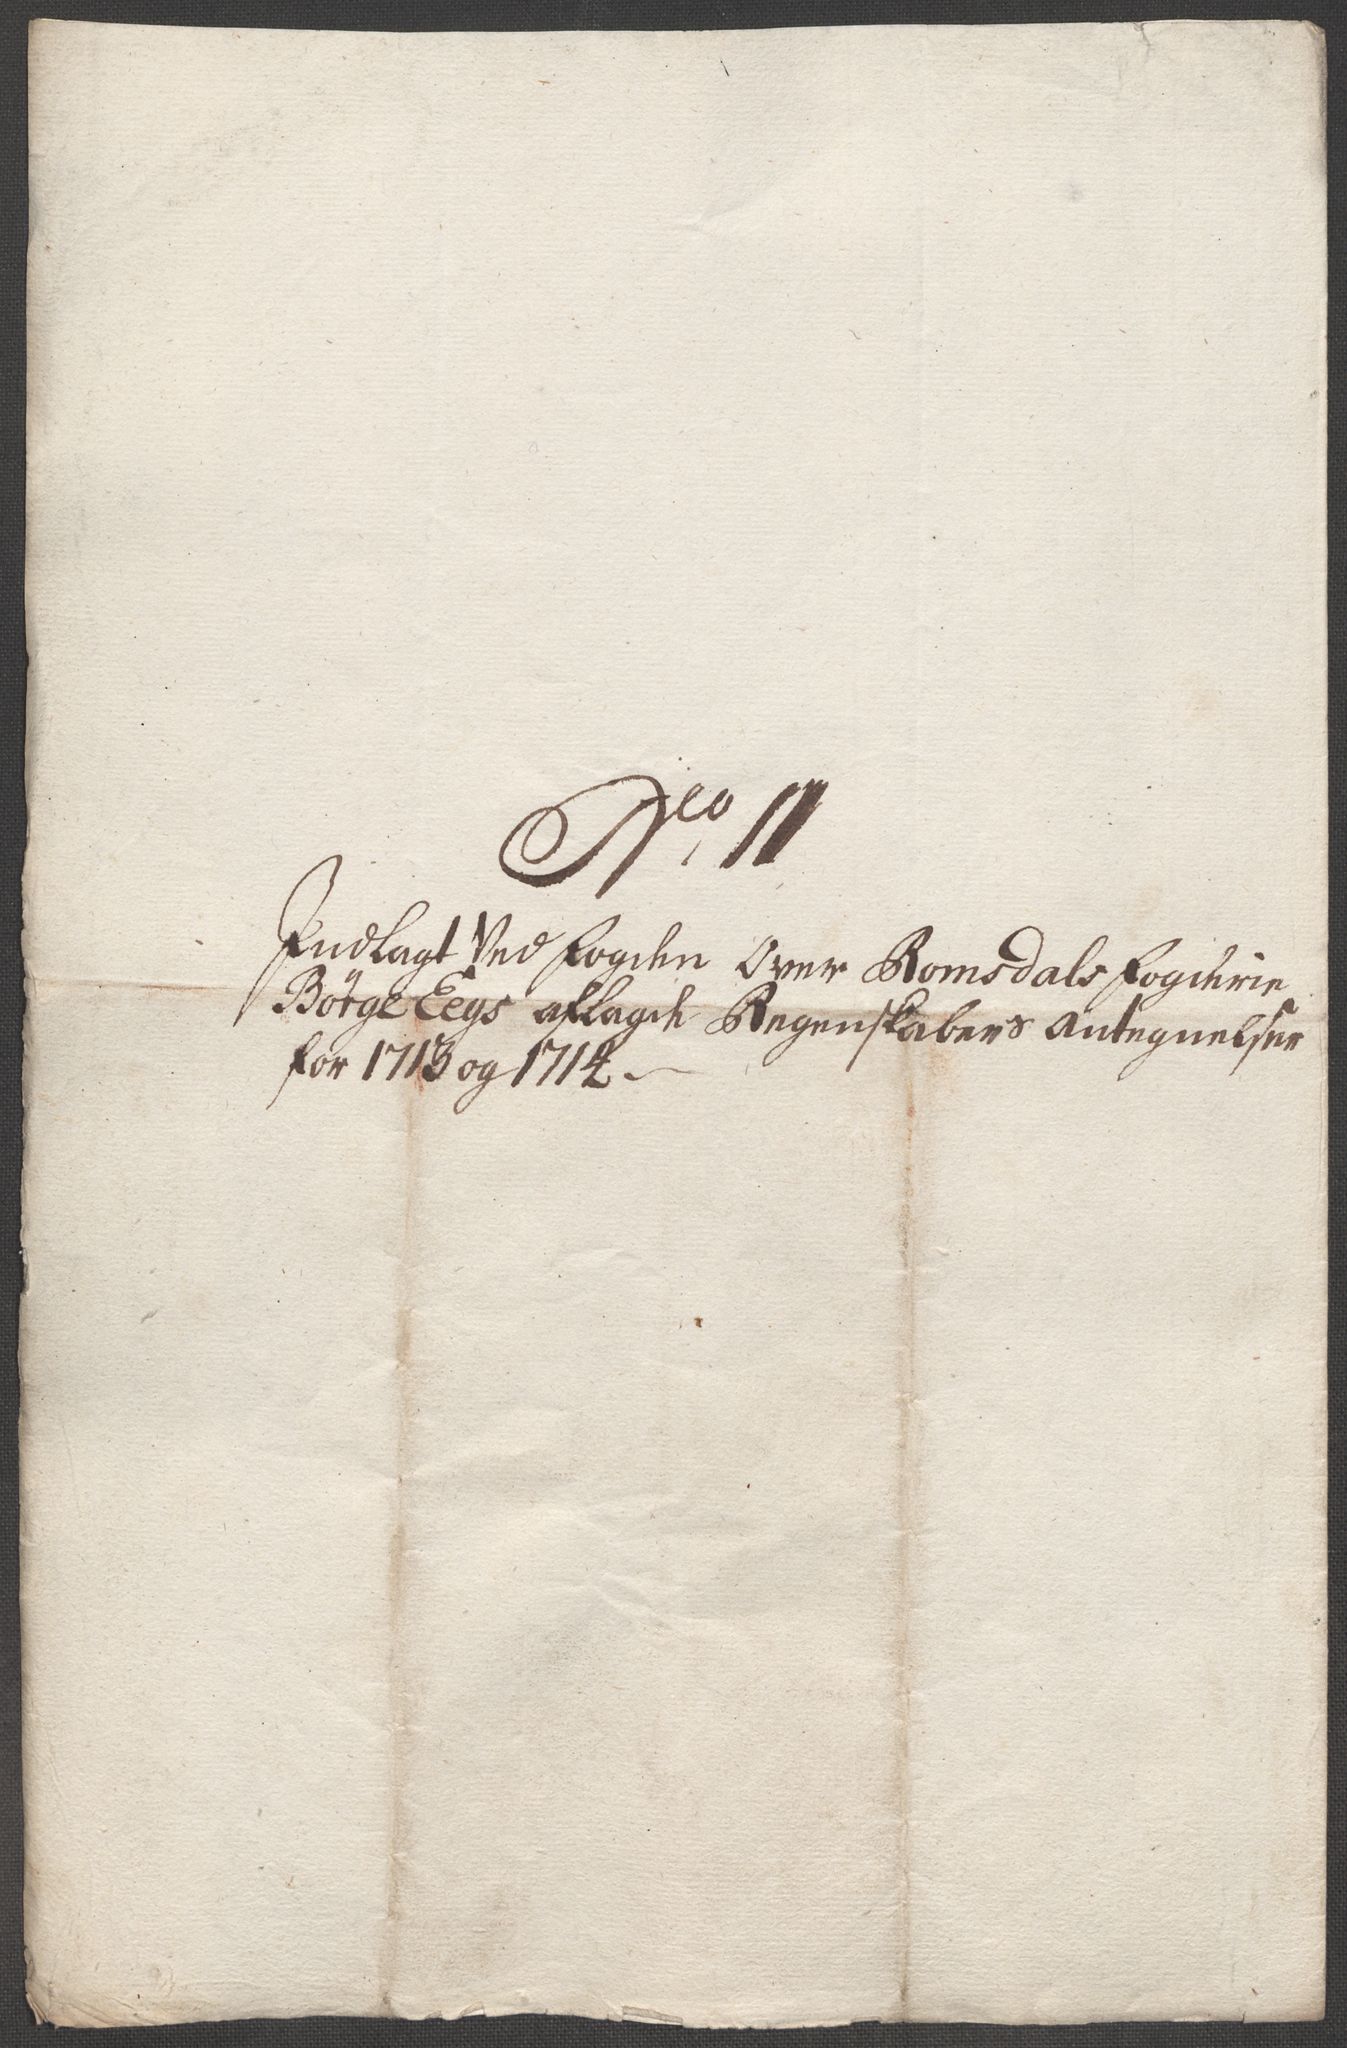 No 11
Indlagt Ved fogden Over Romsdals fogderie
Börge Eegs aflagde Regenskabers Antegnelser
for 1713 og 1714